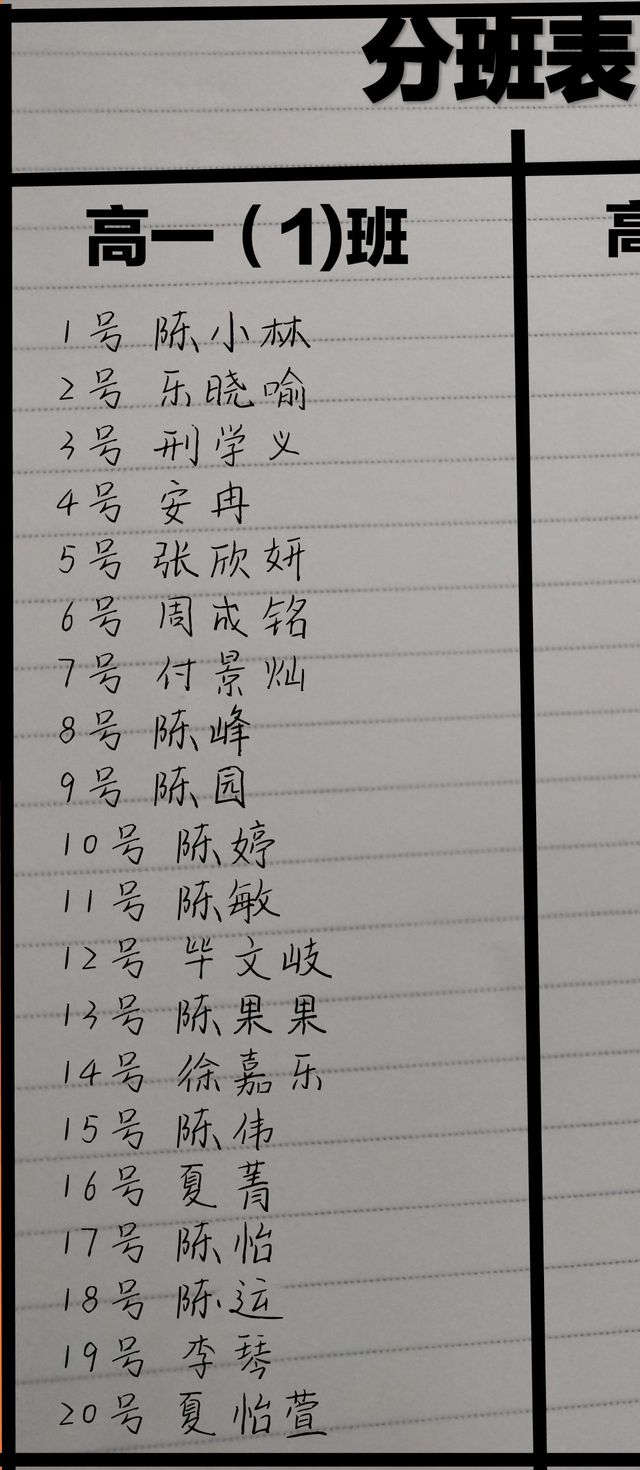 分班表
高一（1)班
1号 陈小林
2号 乐晓喻
3号 刑学义
4号 安冉
5号 张欣妍
6号 周成铭
7号 付景灿
8号 陈峰
9号 陈园
10号 陈婷
11号 陈敏
12号 毕文岐
13号 陈果果
14号 徐嘉乐
15号 陈伟
16号 夏菁
17号 陈怡
18号 陈运
19号 李琴
20号 夏怡萱